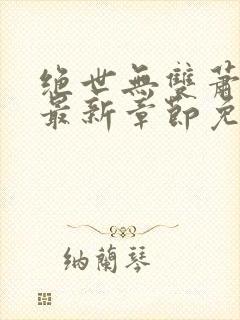 绝世無雙蕭
最新章節免
纳蘭琴